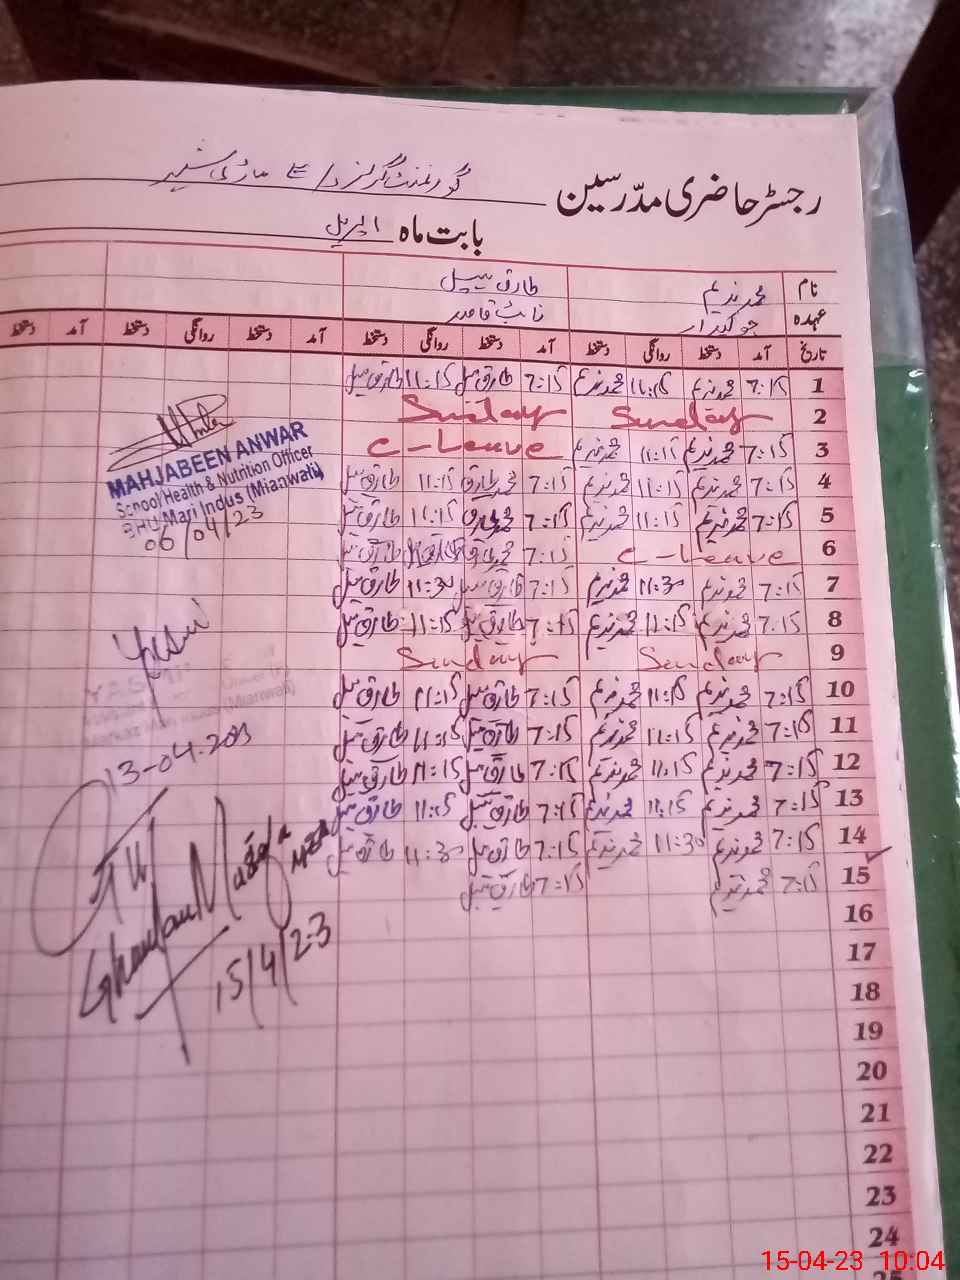 رجسٹر حاضری مدرسین گورنمنٹ گرلز
بابت ماہ اپریل
نام محمد ندیم طارق سہیل
عہدہ چوکیدار نائب قاصد
تاریخ آمد دستخط روانگی دستخط آمد دستخط روانگی دستخط آمد دستخط روانگی دستخط آمد دستخط
1 7:15 محمد ندیم 11:15 محمد ندیم 7:15 طارق سہیل 11:15 طارق سہیل
2 Sunday Sunday
3 7:15 محمد ندیم 11:15 محمد ندیم C-Leave
4 7:15 محمد ندیم 11:15 محمد ندیم 7:15 محمد طارق 11:15 طارق سہیل
5 7:15 محمد ندیم 11:15 محمد ندیم 7:15 محمد طارق 11:15 طارق سہیل
6 C-Leave 7:15 محمد طارق طارق سہیل
7 7:15 محمد ندیم 11:30 محمد ندیم 7:15 طارق سہیل 11:30 طارق سہیل
8 7:15 محمد ندیم 11:15 محمد ندیم 7:15 طارق سہیل 11:15 طارق سہیل
9 Sunday Sunday
10 7:15 محمد ندیم 11:15 محمد ندیم 7:15 طارق سہیل 11:15 طارق سہیل
11 7:15 محمد ندیم 11:15 محمد ندیم 7:15 طارق سہیل 11:15 طارق سہیل
12 7:15 محمد ندیم 11:15 محمد ندیم 7:15 طارق سہیل 11:15 طارق سہیل
13 7:15 محمد ندیم 11:15 محمد ندیم 7:15 طارق سہیل 11:15 طارق سہیل
14 7:15 محمد ندیم 11:30 محمد ندیم 7:15 طارق سہیل 11:30 طارق سہیل
15 7:15 محمد ندیم 7:15 طارق سہیل
16
17
18
19
20
21
22
23
24
25
MAHJABEEN ANWAR
School Health & Nutrition Officer
BHU Mari Indus (Mianwali)
06/04/23
Markaz Mari Indus (Mianwali)
13-04-203
Ghulam
15/4/23
15-04-23 10:04